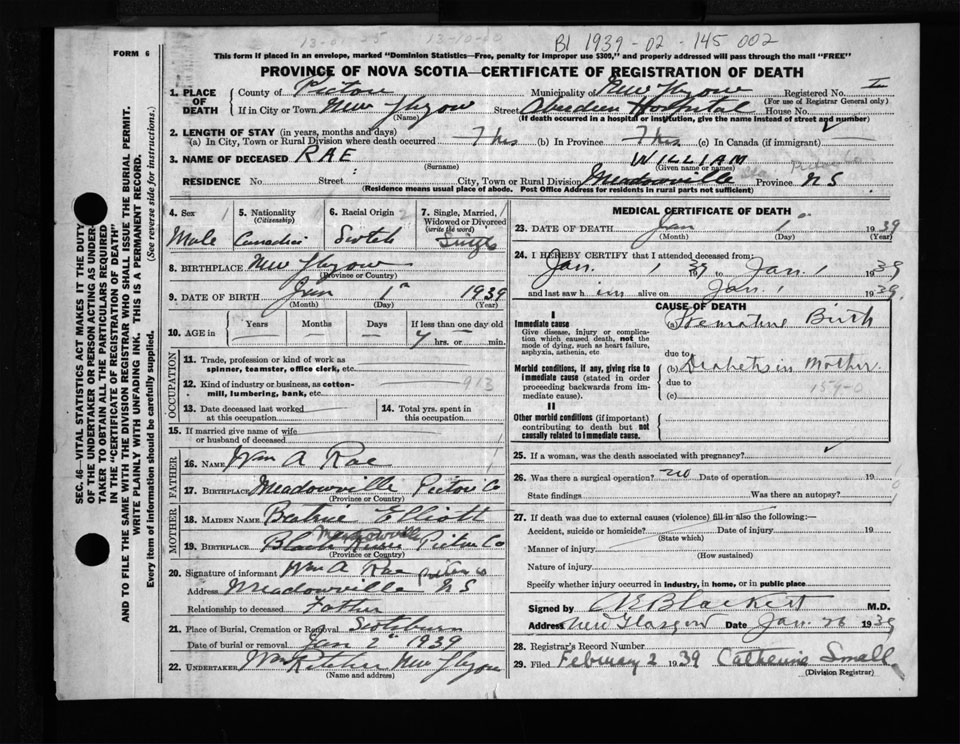 13-01-25 13-10-00 B1 1939-02-145 002
FORM 6
This form if placed in an envelope, marked "Dominion Statistics—Free, penalty for improper use $300," and properly addressed will pass through the mail "FREE"
PROVINCE OF NOVA SCOTIA—CERTIFICATE OF REGISTRATION OF DEATH
SEC. 46—VITAL STATISTICS ACT MAKES IT THE DUTY
OF THE UNDERTAKER OR PERSON ACTING AS UNDER-
TAKER TO OBTAIN ALL THE PARTICULARS REQUIRED
IN THE "CERTIFICATE OF REGISTRATION OF DEATH"
AND TO FILE THE SAME WITH THE DIVISION REGISTRAR WHO SHALL ISSUE THE BURIAL PERMIT.
WRITE PLAINLY WITH UNFADING INK. THIS IS A PERMANENT RECORD.
Every item of information should be carefully supplied. (See reverse side for instructions.)
1. PLACE OF DEATH
County of Pictou Municipality of New Glasgow Registered No.
(For use of Registrar General only)
If in City or Town New Glasgow Street Aberdeen Hospital House No.
(Name) (If death occurred in a hospital or institution, give the name instead of street and number)
2. LENGTH OF STAY (in years, months and days)
(a) In City, Town or Rural Division where death occurred 7 hrs (b) In Province 7 hrs (c) In Canada (if immigrant)
3. NAME OF DECEASED RAE WILLIAM
(Surname) (Given name or names)
RESIDENCE No. Street City, Town or Rural Division Meadowville Province NS
(Residence means usual place of abode. Post Office Address for residents in rural parts not sufficient)
4. Sex 5. Nationality (Citizenship) 6. Racial Origin 7. Single, Married, Widowed or Divorced (write the word)
Male Canadian Scotch Single
8. BIRTHPLACE New Glasgow
(Province or Country)
9. DATE OF BIRTH Jan 1st 1939
(Month) (Day) (Year)
10. AGE in Years Months Days If less than one day old
7 hrs. or min.
OCCUPATION
11. Trade, profession or kind of work as
spinner, teamster, office clerk, etc.
12. Kind of industry or business, as cotton-
mill, lumbering, bank, etc. 913
13. Date deceased last worked at this occupation 14. Total yrs. spent in this occupation
15. If married give name of wife
or husband of deceased
FATHER
16. NAME Wm A Rae
17. BIRTHPLACE Meadowville Pictou Co
(Province or Country)
MOTHER
18. MAIDEN NAME Beatrice Elliott
Meadowville
19. BIRTHPLACE Black River Pictou Co
(Province or Country)
20. Signature of informant Wm A Rae Pictou Co
Address Meadowville NS
Relationship to deceased Father
21. Place of Burial, Cremation or Removal Scotsburn
Date of burial or removal Jan 2nd 1939
22. UNDERTAKER New Glasgow
(Name and address)
MEDICAL CERTIFICATE OF DEATH
23. DATE OF DEATH Jan 1 1939
(Month) (Day) (Year)
24. I HEREBY CERTIFY that I attended deceased from:
Jan. 1 1939 to Jan. 1 1939
and last saw him alive on Jan. 1 1939
CAUSE OF DEATH
I
Immediate cause
Give disease, injury or complica-
tion which caused death, not the
mode of dying, such as heart failure,
asphyxia, asthenia, etc
(a) Premature Birth
due to
Morbid conditions, if any, giving rise to
immediate cause (stated in order
proceeding backwards from im-
mediate cause).
(b) Diabetes in Mother
due to 159-0
(c)
II
Other morbid conditions (if important)
contributing to death but not
causally related to immediate cause.
25. If a woman, was the death associated with pregnancy?
26. Was there a surgical operation? no Date of operation 19
State findings Was there an autopsy?
27. If death was due to external causes (violence) fill in also the following:—
Accident, suicide or homicide? Date of injury 19
(State which)
Manner of injury
(How sustained)
Nature of injury
Specify whether injury occurred in industry, in home, or in public place
Signed by M.D.
Address New Glasgow Date Jan. 26 1939
28. Registrar's Record Number
29. Filed February 2 1939 Catherine Small
(Division Registrar)